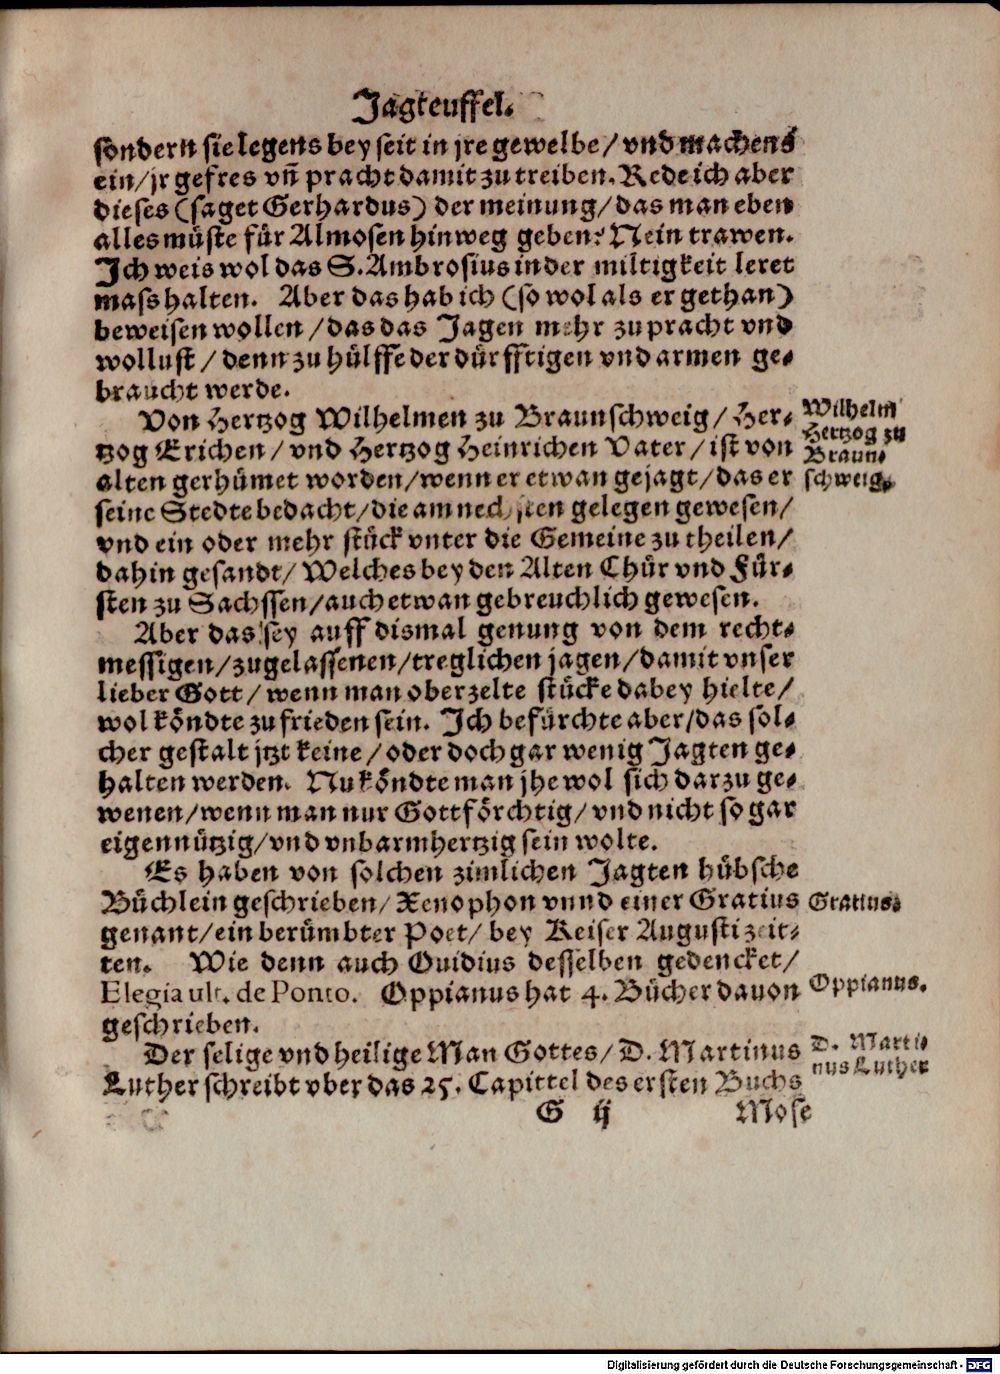 Jagteuffel.
sondern sie legens bey seit in jre gewelbe/ vnd machens
ein/ jr gefres vñ pracht damit zu treiben. Rede ich aber
dieses (saget Gerhardus) der meinung/ das man eben
alles müste für Almosen hinweg geben? Nein trawen.
Ich weis wol das S. Ambrosius in der miltigkeit leret
mass halten. Aber das hab ich (so wol als er gethan)
beweisen wollen/ das das Jagen mehr zu pracht vnd
wollust/ denn zu hülffe der dürfftigen vnd armen ge-
braucht werde.
Von Hertzog Wilhelmen zu Braunschweig/ Her-
tzog Erichen/ vnd Hertzog Heinrichen Vater/ ist von
alten gerhümet worden/ wenn er etwan gejagt/ das er
seine Stedte bedacht/ die am nechsten gelegen gewesen/
vnd ein oder mehr stück vnter die Gemeine zu theilen/
dahin gesandt/ Welches bey den Alten Chür vnd Für-
sten zu Sachssen/ auch etwan gebreuchlich gewesen.
Aber das sey auff dismal genung von dem recht-
messigen/ zugelassenen/ treglichen jagen/ damit vnser
lieber Gott/ wenn man oberzelte stücke dabey hielte/
wol köndte zu frieden sein. Ich befürchte aber/ das sol-
cher gestalt jtzt keine/ oder doch gar wenig Jagten ge-
halten werden. Nu köndte man jhe wol sich darzu ge-
wenen/ wenn man nur Gottförchtig/ vnd nicht so gar
eigennützig/ vnd vnbarmhertzig sein wolte.
Es haben von solchen zimlichen Jagten hübsche
Büchlein geschrieben/ Xenophon vnnd einer Gratius
genant/ ein berümbter Poet/ bey Keiser Augusti zeit-
ten. Wie denn auch Ouidius desselben gedencket/
Elegia ult. de Ponto. Oppianus hat 4. Bücher dauon
geschrieben.
Der selige vnd heilige Man Gottes/ D. Martinus
Luther schreibt vber das 25. Capittel des ersten Buchs
G ij Mose
Wilhelm
Hertzog zu
Braun-
schweig.
Gratius.
Oppianus.
D. Marti-
nus Luther
Digitalisierung gefördert durch die Deutsche Forschungsgemeinschaft - DFG